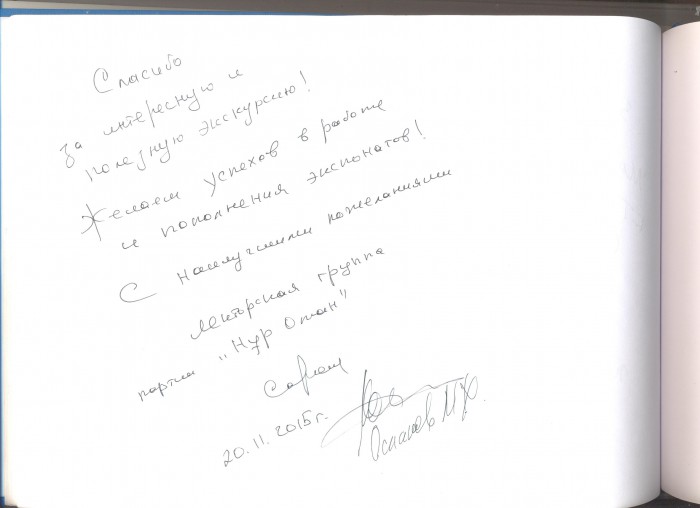 Спасибо
за интересную и
полезную экскурсию!
Желаем успехов в работе
и пополнения экспонатов!
С наилучшими пожеланиями
лекторская группа
партии "Нұр Отан"
20.11.2015г.